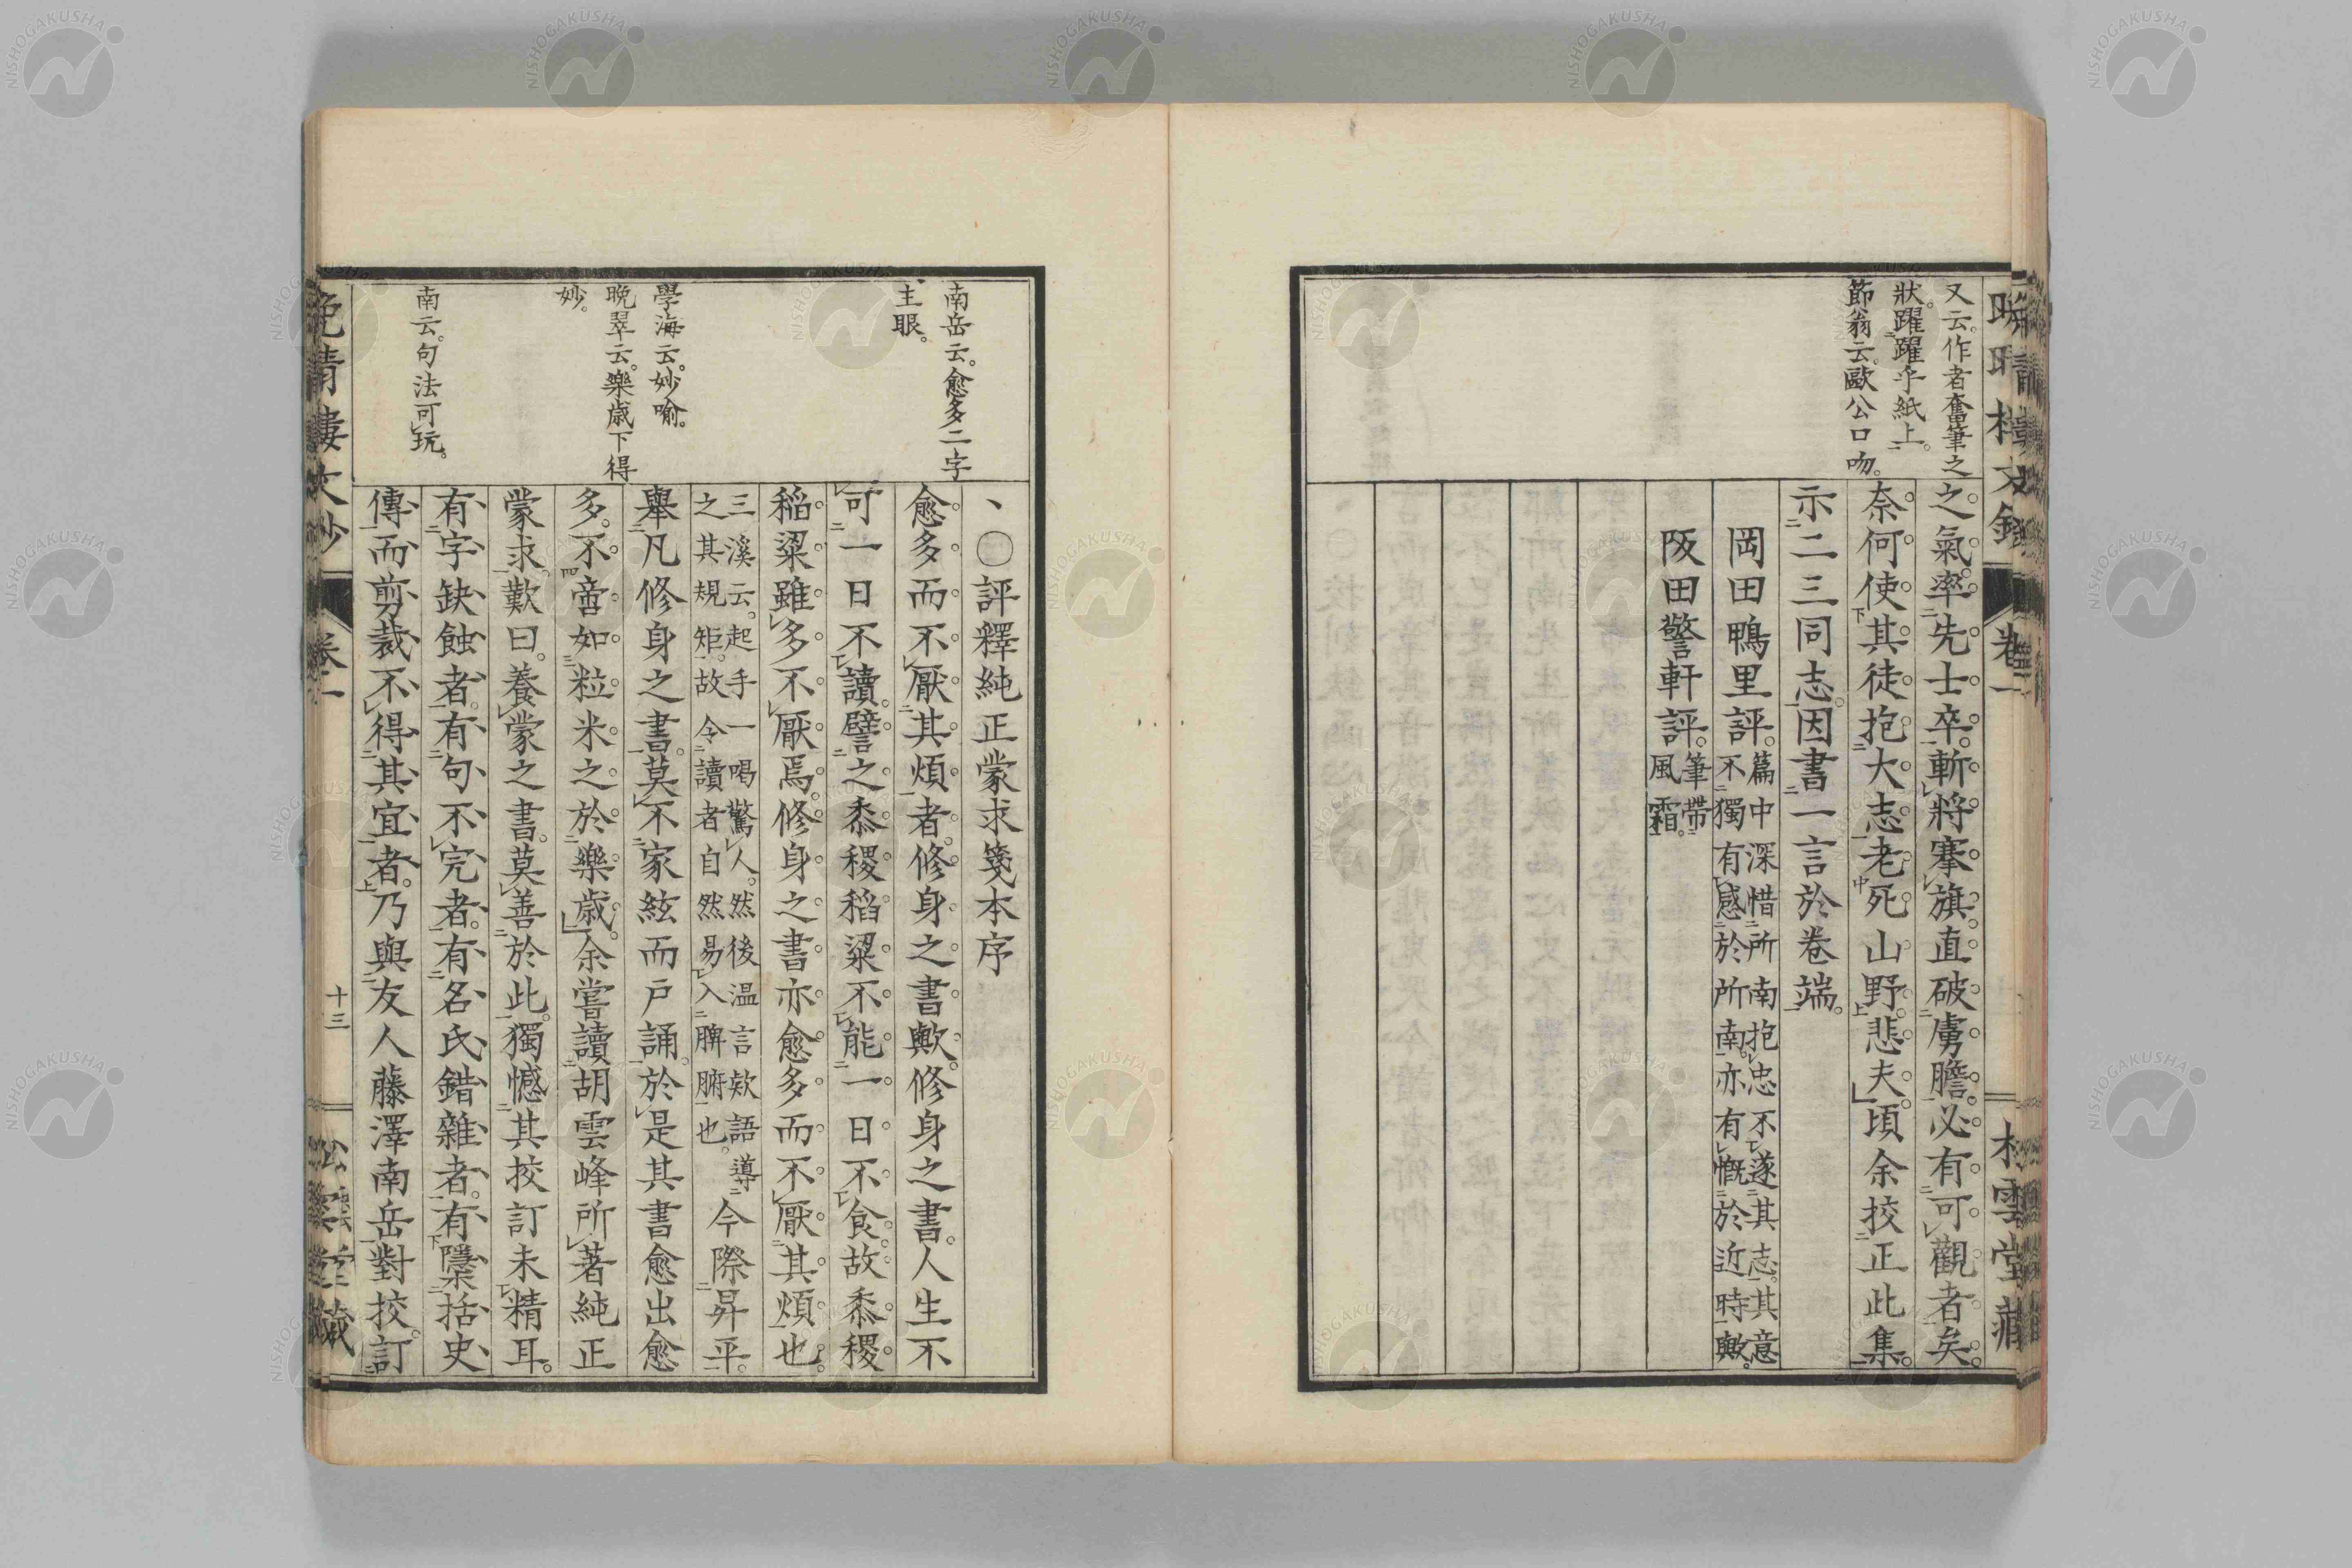 又云。作者奮筆之
狀。躍躍乎紙上。
節翁云。歐公口吻。
之氣。率先士卒。斬將搴旗。直破虜膽。必有可觀者矣。
奈何使其徒抱大志老死山野。悲夫。頃余挍正此集。
示二三同志。因書一言於卷端。
岡田鴨里評。篇中深惜所南抱忠不遂其志。其意
不獨有感於所南。亦有慨於近時歟。
阪田警軒評。筆帶
風霜。
南岳云。愈多二字
主眼。
學海云。妙喻。
晩翠云。樂歲下得
妙。
南云。句法可玩。
、〇評釋純正蒙求箋本序
愈多而不厭其煩者。修身之書歟。修身之書。人生不
可一日不讀。譬之黍稷稻粱不能一日不食。故黍稷
稻粱雖多不厭焉。修身之書亦愈多而不厭其煩也。
三溪云。起手一喝驚人。然後温言欵語導
之其規矩。故令讀者自然易入脾腑也。
今際昇平。
舉凡修身之書。莫不家絃而戶誦。於是其書愈出愈
多。不啻如粒米之於樂歲。余嘗讀胡雲峰所著純正
蒙求。歎曰。養蒙之書。莫善於此。獨憾其挍訂未精耳。
有字缺蝕者。有句不完者。有名氏錯雜者。有檃括史
傳而剪裁不得其宜者。乃與友人藤澤南岳對挍。訂
晩晴樓文鈔
卷二
十三
松雲堂藏